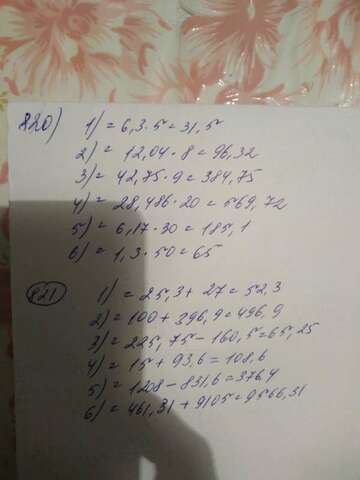 820) 1) = 6,3 · 5 = 31,5
2) = 12,04 · 8 = 96,32
3) = 42,75 · 9 = 384,75
4) = 28,486 · 20 = 569,72
5) = 6,17 · 30 = 185,1
6) = 1,3 · 50 = 65
821 1) = 25,3 + 27 = 52,3
2) = 100 + 396,9 = 496,9
3) = 225,75 - 160,5 = 65,25
4) = 15 + 93,6 = 108,6
5) = 1208 - 831,6 = 376,4
6) = 461,31 + 9105 = 9566,31